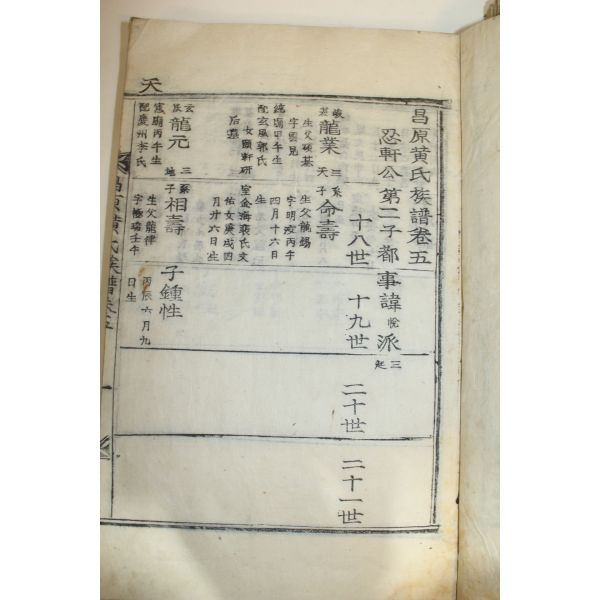 天
昌原黄氏族譜卷五
忍軒公第二子都事諱悅派三起
十八世
十九世
二十世
二十一世
龍業
三系
天子
生父碩基
字雲見
純廟甲午生
配玄風郭氏
女顯軒研
后
命壽
生父龍錫
字明瑞丙午
四月十六日
生
室金海裵氏文
佑女庚戌四
月廿六日生
玄
龍元
三系
地子
憲廟丙午生
配慶州李氏
相壽
生父龍律
字極瑞壬午
子鍾性
丙辰六月九
日生
昌原黄氏族譜卷五